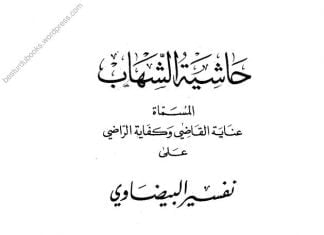 besturdubooks.wordpress.com
حَاشِيَة الشِّهَابْ
المُسَمَّاة
عِنَايَة القَاضِي وَكِفَايَة الرَاضِي
عَلىٰ
تفسِير البَيضَاوِي